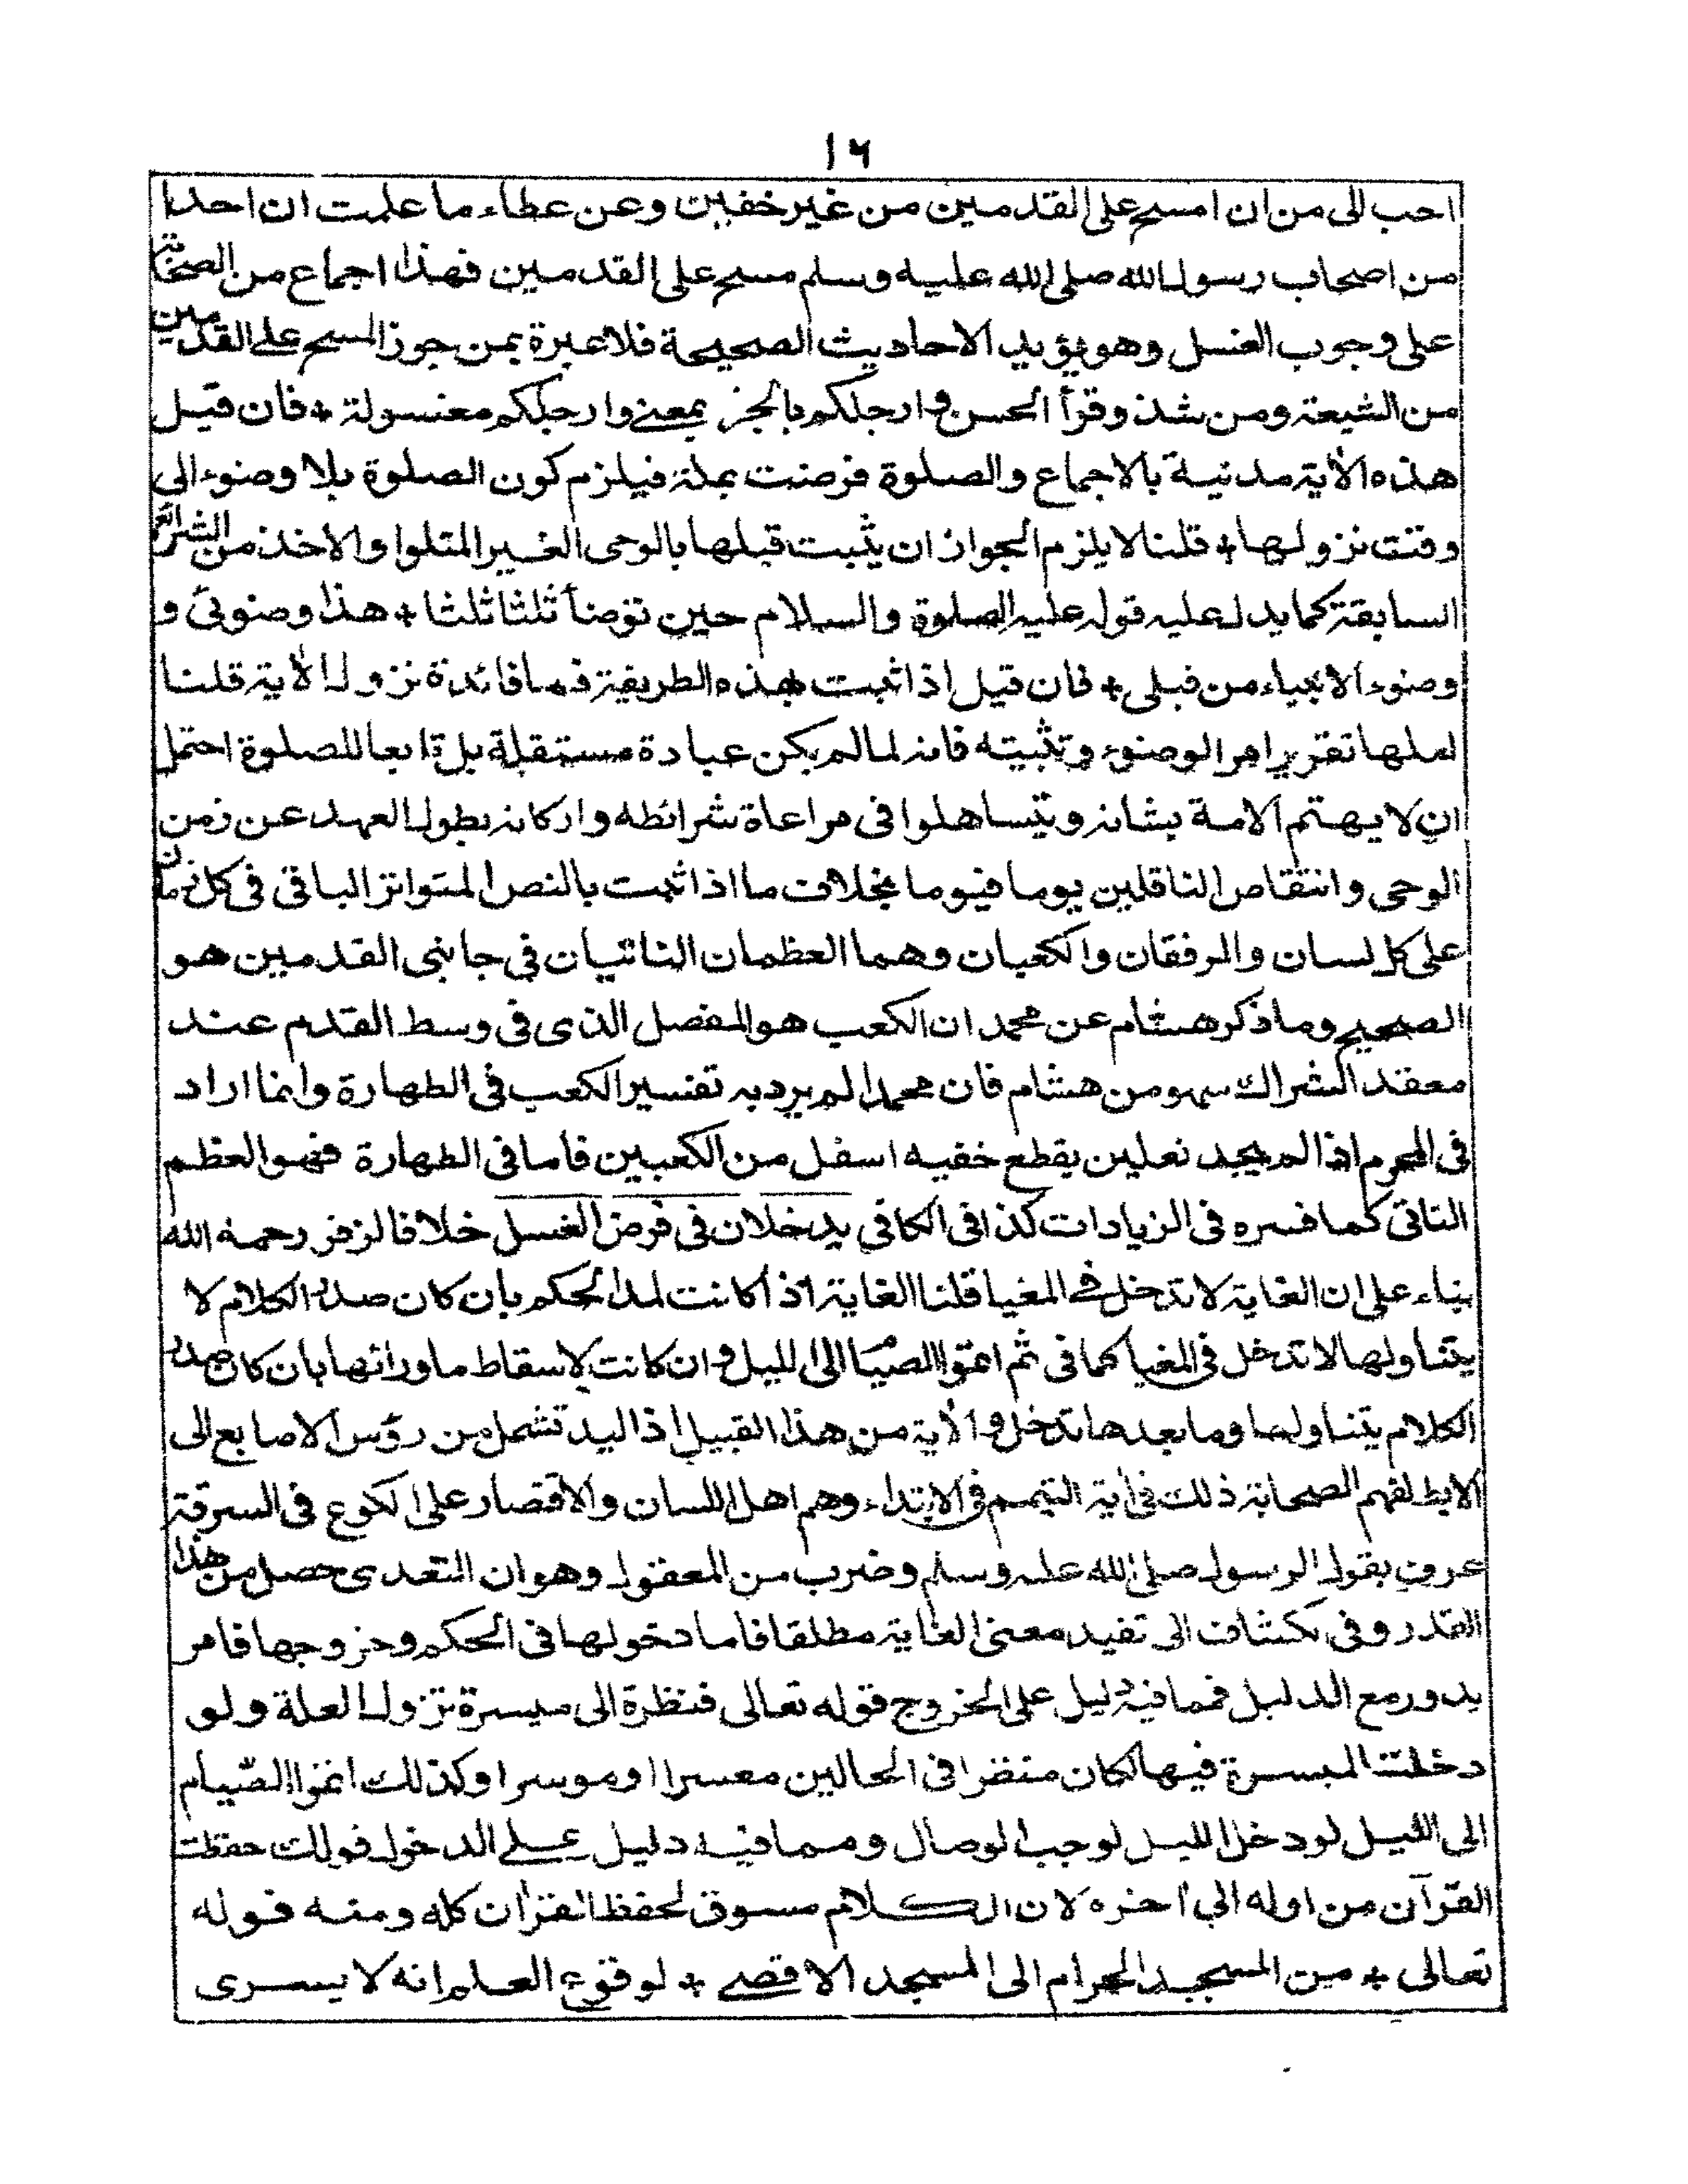 ١٦
احب الى من ان امسح على القدمين من غير خفين وعن عطاء ما علمت ان احدا
من اصحاب رسول الله صلى الله عليه وسلم مسح على القدمين فهذا اجماع من الصحابة
على وجوب الغسل وهو يؤيد الاحاديث الصحيحة فلا عبرة بمن جوز المسح على القدمين
من الشيعة ومن شذ وقرأ الحسن وارجلكم بالجز بمعنى وارجلكم مغسولة + فان قيل
هذه الأية مدنية بالاجماع والصلوة فرضت بمكة فيلزم كون الصلوة بلا وضوء الى
وقت نزولها + قلنا لا يلزم الجواز ان يثبت قبلها بالوحى الغير المتلو او الاخذ من الشرائع
السابقة كما يدل عليه قوله عليه الصلوة والسلام حين توضأ ثلثا ثلثا + هذا وضوئى و
وضوء الانبياء من قبلى + فان قيل اذا ثبت بهذه الطريقة فما فائدة نزول الأية قلنا
لعلها تقرير امر الوضوء وتثبيته فانه لما لم يكن عبادة مستقلة بل تابعا للصلوة احتمل
ان لا يهتم الامة بشانه ويتساهلوا فى مراعاة شرائطه واركانه بطول العهد عن زمن
الوحى وانتقاص الناقلين يوما فيوما بخلاف ما اذا ثبت بالنص المتواتر الباقى فى كل زمان
على كل لسان والمرفقان والكعبان وهما العظمان الناتيان فى جانبى القدمين هو
الصحيح وما ذكر هشام عن محمد ان الكعب هو المفصل الذى فى وسط القدم عند
معقد الشراك سهو من هشام فان محمدا لم يرد به تفسير الكعب فى الطهارة وانما اراد
فى المحرم اذا لم يجد نعلين يقطع خفيه اسفل من الكعبين فاما فى الطهارة فهو العظم
الناتى كما فسره فى الزيادات كذا فى الكافى يدخلان فى فرض الغسل خلافا لزفر رحمه الله
بناء على ان الغاية لا تدخل فى المغيا قلنا الغاية اذا كانت لمد الحكم بان كان صدر الكلام لا
يتناولها لا تدخل فى المغيا كما فى ثم اتموا الصيام الى الليل وان كانت لاسقاط ما ورائها بان كان صدر
الكلام يتناولها وما بعدها تدخل والأية من هذا القبيل اذ اليد تشمل من رؤس الاصابع الى
الابط لفهم الصحابة ذلك فى أية التيمم فى الابتداء وهم اهل اللسان والاقتصار على الكوع فى السرقة
عرف بقول الرسول صلى الله عليه وسلم وضرب من المعقول وهو ان التعدى حصل من هذا
القدر وفى الكشاف الى تفيد معنى الغاية مطلقا فاما دخولها فى الحكم وخروجها فامر
يدور مع الدليل فمما فيه دليل على الخروج قوله تعالى فنظرة الى ميسرة تزول العلة ولو
دخلت الميسرة فيها لكان منظرا فى الحالين معسرا او موسرا وكذلك اتموا الصيام
الى الليل لو دخل الليل لوجب الوصال ومما فيه دليل على الدخول قولك حفظت
القرآن من اوله الى أخره لان الكلام مسوق لحفظ القرأن كله ومنه قوله
تعالى + من المسجد الحرام الى المسجد الاقصى + لوقوع العلم انه لا يسرى